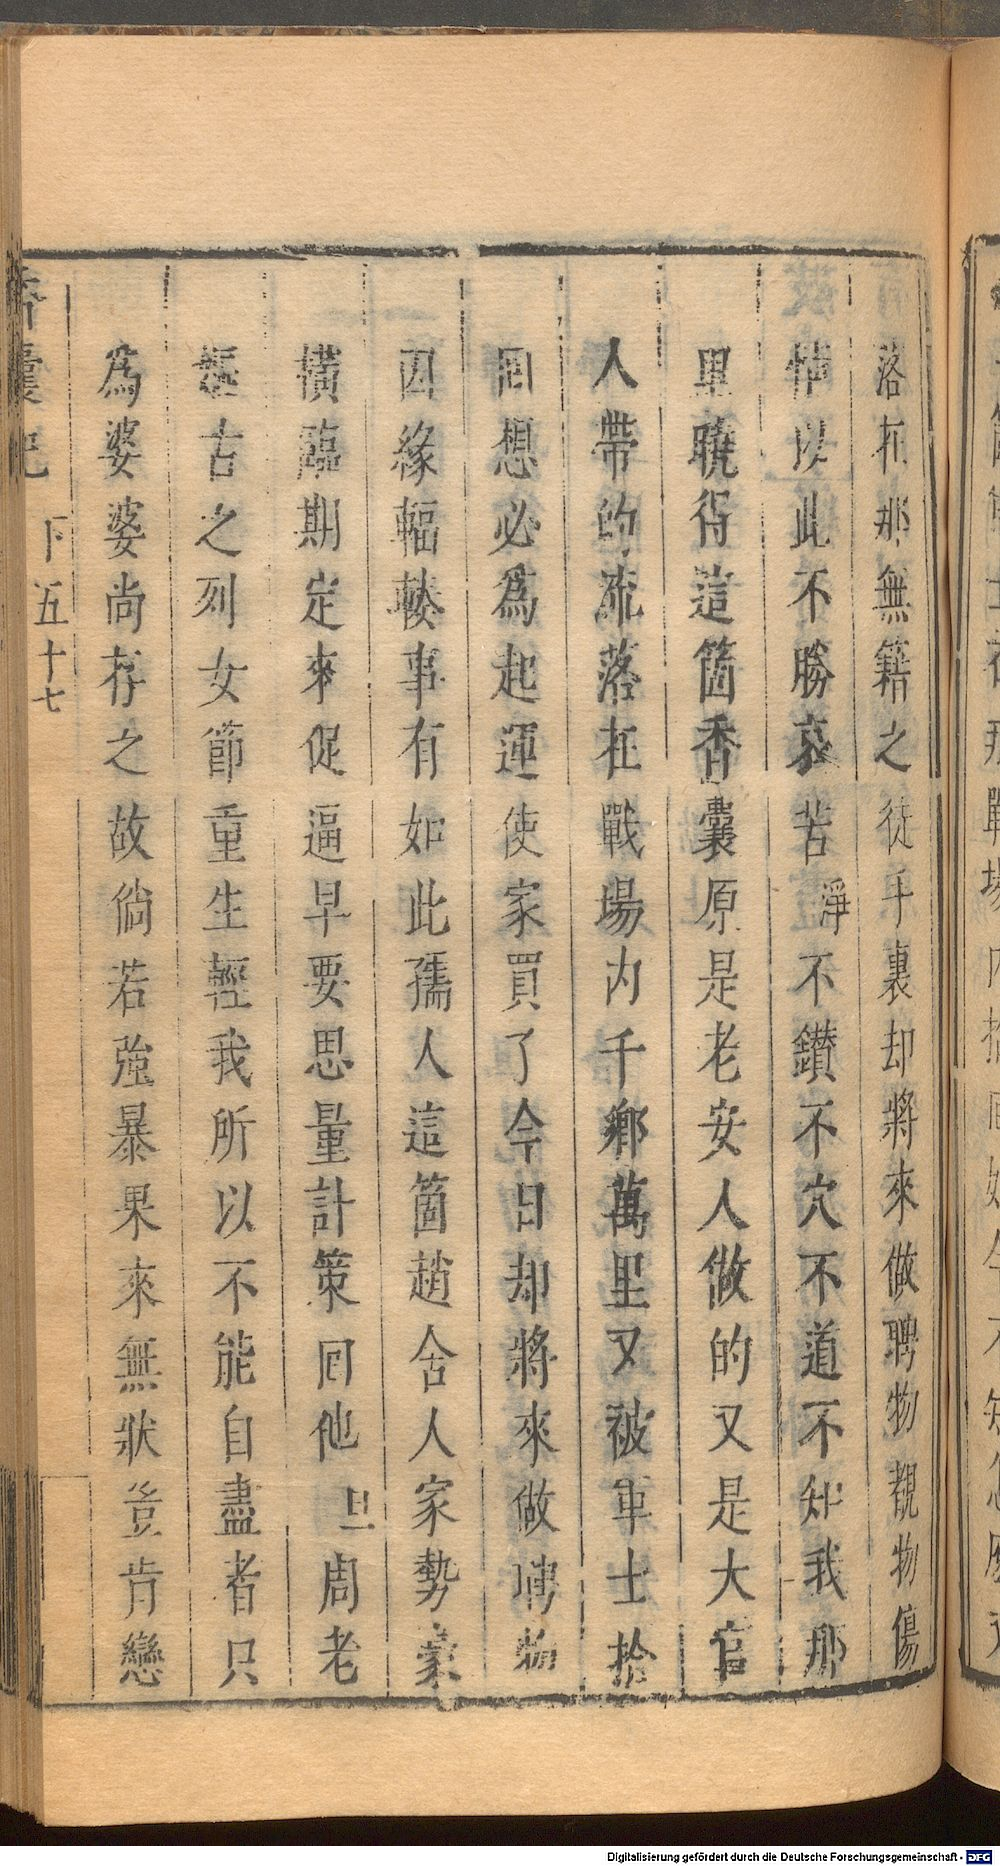 落在那無籍之徒手裏却將來做聘物覩物傷
情以此不勝哀苦淨不鑽不穴不道不知我那
里曉得這箇香囊原是老安人做的又是大官
人帶的流落在戰場内千鄉萬里又被軍士拾
回想必為起運使家買了今日却將來做聘物
因緣輻輳事有如此孺人這箇趙舍人家勢豪
橫臨期定來促逼早要思量計策回他旦周老
古之列女節重生輕我所以不能自盡者只
為婆婆尚存之故倘若強暴果來無狀豈肯戀
香囊記 下 五十七
Digitalisierung gefördert durch die Deutsche Forschungsgemeinschaft - DFG